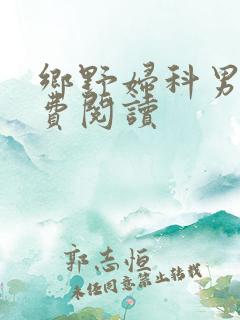 鄉野婦科男
費閱讀
郭志恒
未经同意禁止转载